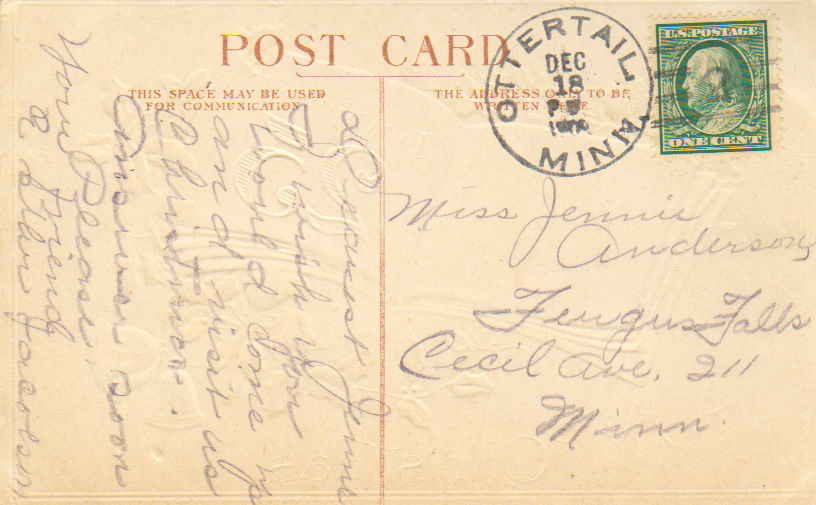 POST CARD
THIS SPACE MAY BE USED
FOR COMMUNICATION
THE ADDRESS ONLY TO BE
WRITTEN HERE
OTTERTAIL,
DEC
18
MINN.
U.S. POSTAGE
ONE CENT
Miss Jennie
Anderson,
Fergus Falls
Cecil Ave. 211
Minn.
Dearest Jennie
I wish you
would come up
and visit us
Christmas.
Please
Answer soon
Your friend